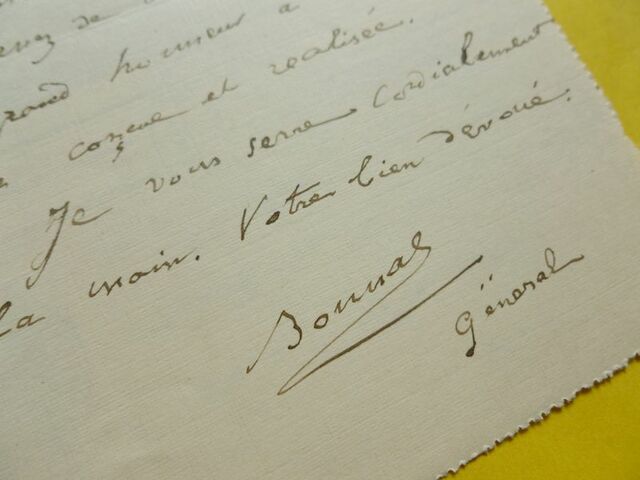 grand honneur à
conçue et réalisée.
Je vous serre cordialement
la main. Votre bien dévoué.
Bonnal
Général